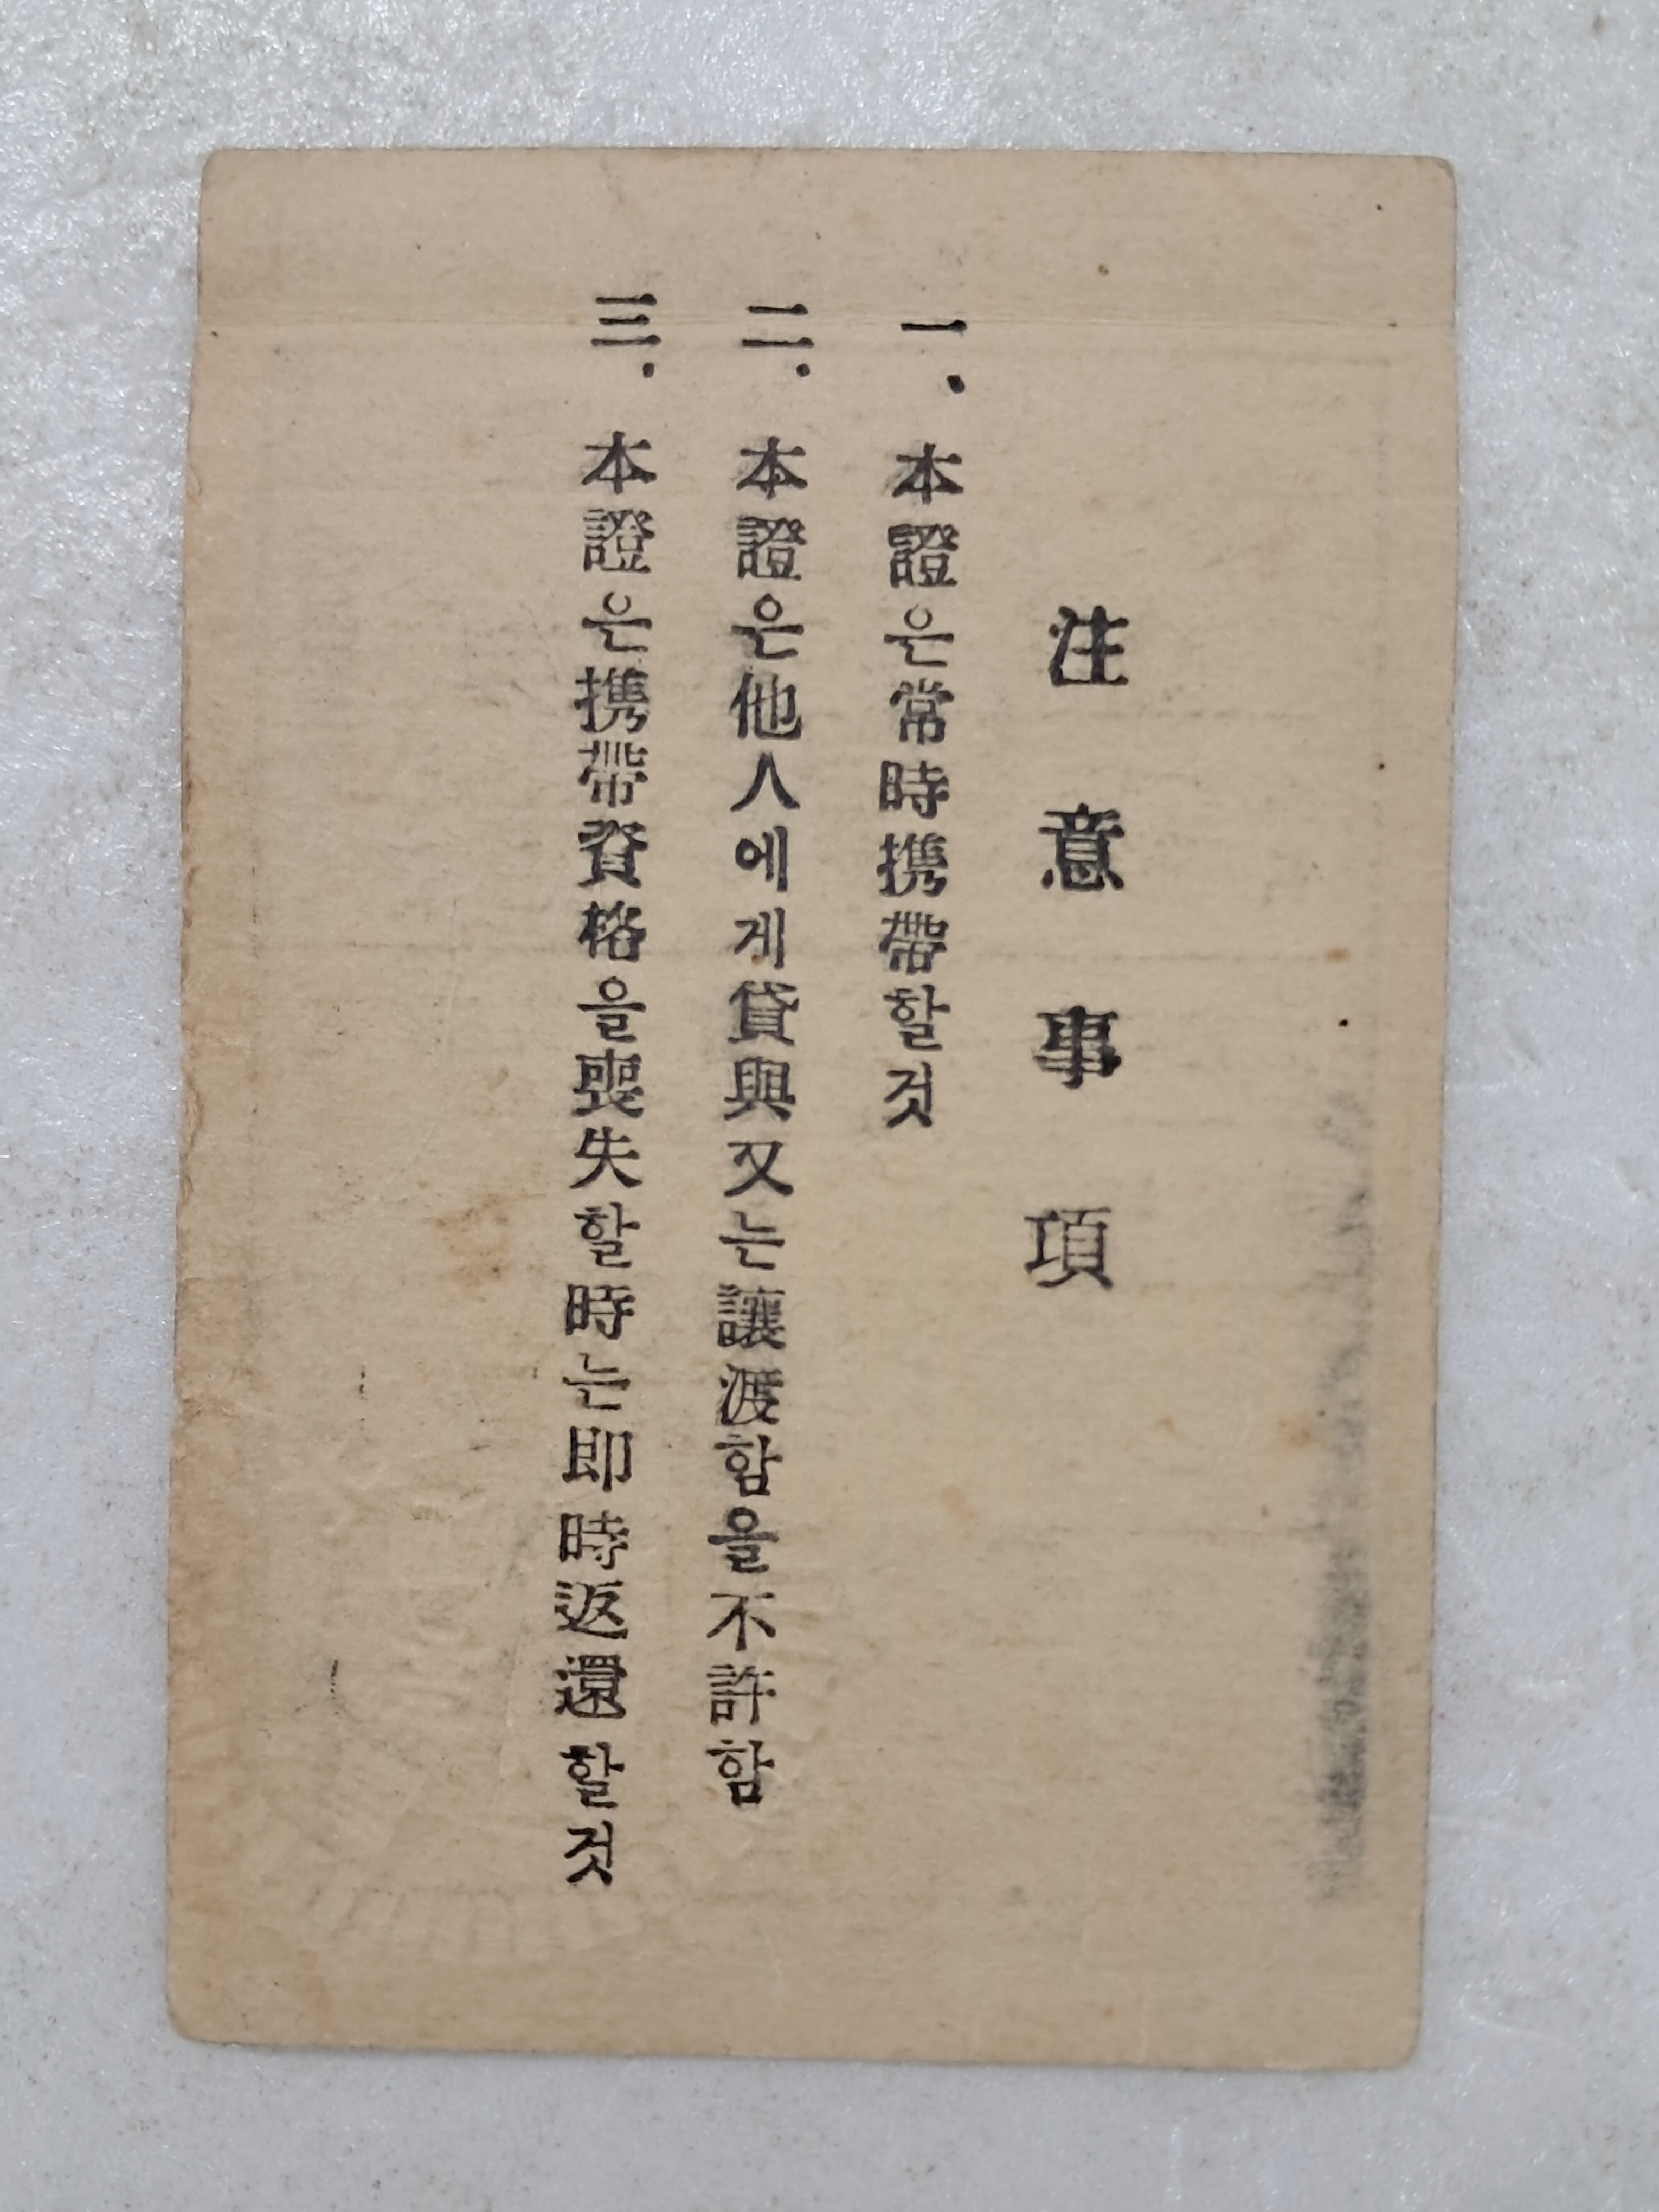 注意事項
一、本證은常時携帶할것
二、本證은他人에게貸與又는讓渡함을不許함
三、本證은携帶資格을喪失할時는即時返還할것